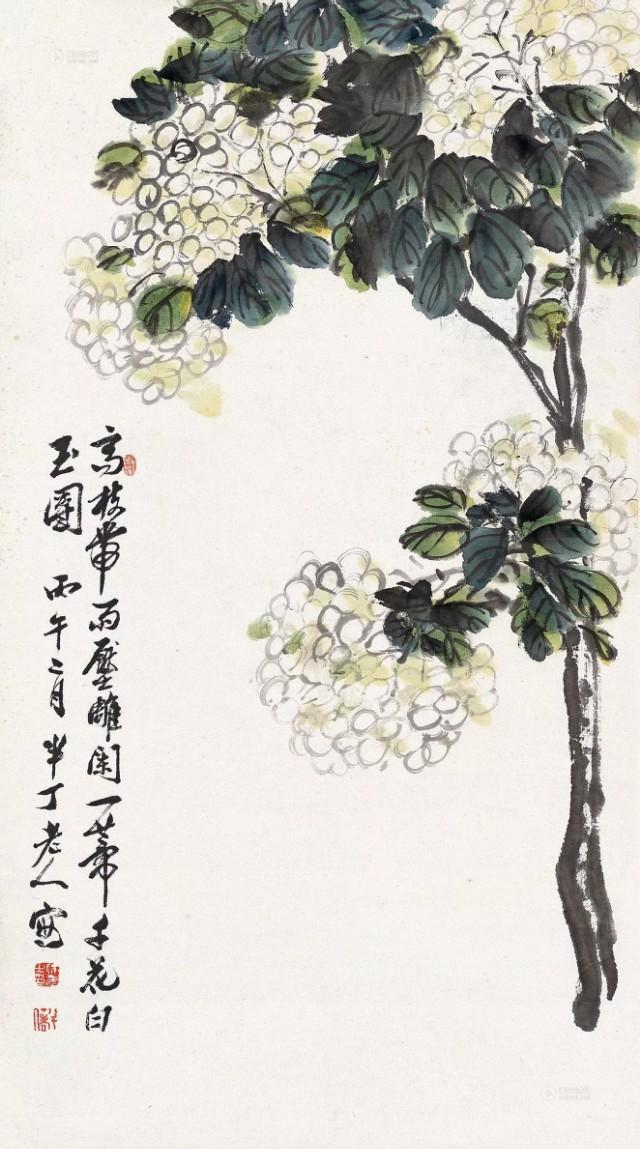 高枝带雨压雕阑一蒂千花白
玉團 丙午二月 半丁老人寫